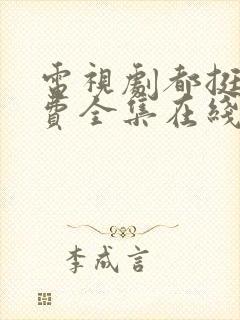 電視劇都挺
費全集在綫
李成言